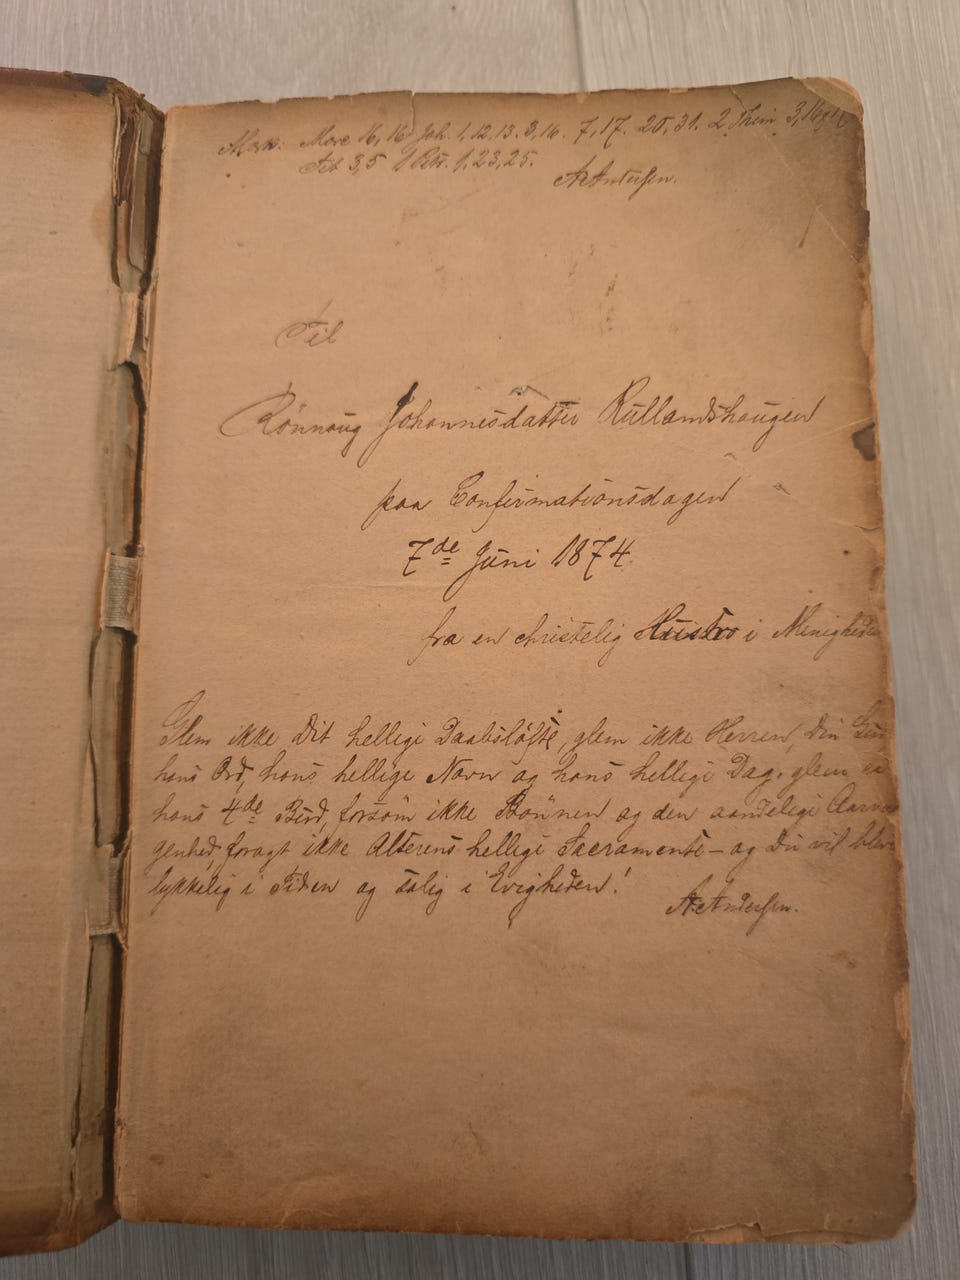 Mærk: Marc 16,16 Joh. 1,12,13. 3,16. 7,17. 20,31. 2 Thim 3,16
Tit 3,5 1 Petr. 1,23,25.
A. Andersen.
Til
Rönnoug Johannesdatter Rullandshaugen
paa Confirmationsdagen
7de Juni 1874
fra en christelig Hustro i Menigheden
Glem ikke Dit hellige Daabsløfte, glem ikke Herren, din Gud
hans Ord, hans hellige Navn og hans hellige Dag, glem
hans 4de Bud, forsöm ikke Bönnen og den aandelige Aarvaa
genhed, foragt ikke Alterens hellige Sacramente – og Du vil blive
lykkelig i Tiden og salig i Evigheden!
A. Andersen.